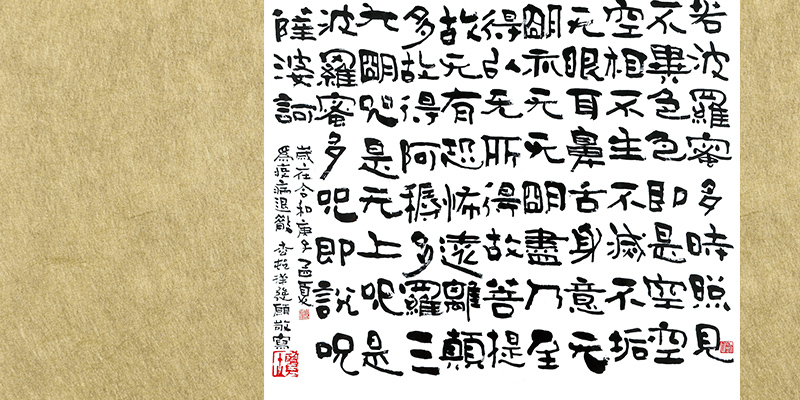 若波羅蜜多時照見
不異色色即是空空
空相不生不滅不垢
无眼耳鼻舌身意无
明亦无无明盡乃至
得以无所得故菩提
故无有恐怖遠離顛
多故得阿耨多羅三
大明呪是无上呪是
波羅蜜多呪即說呪
薩婆訶
歲在令和庚子孟夏
為疫病退散 願敬寫